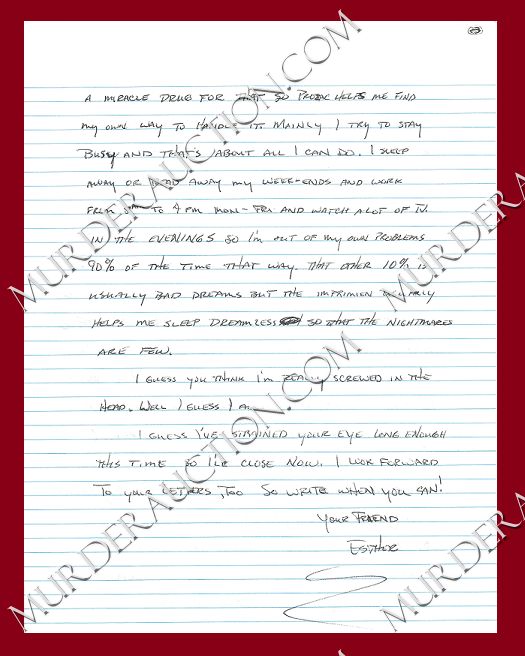 3
A MIRACLE DRUG FOR THAT SO PROZAC HELPS ME FIND
MY OWN WAY TO HANDLE IT. MAINLY I TRY TO STAY
BUSY AND THAT'S ABOUT ALL I CAN DO. I SLEEP
AWAY OR READ AWAY MY WEEK-ENDS AND WORK
FROM TO 4 PM MON-FRI AND WATCH A LOT OF TV.
IN THE EVENINGS SO I'M OUT OF MY OWN PROBLEMS
90% OF THE TIME THAT WAY. THAT OTHER 10% IS
USUALLY BAD DREAMS BUT THE IMPRIMIEN REALLY
HELPS ME SLEEP DREAMLESS SO THAT THE NIGHTMARES
ARE FEW.
I GUESS YOU THINK I'M REALLY SCREWED IN THE
HEAD. WELL I GUESS I AM.
I GUESS I'VE STRAINED YOUR EYE LONG ENOUGH
THIS TIME SO I'LL CLOSE NOW. I LOOK FORWARD
TO YOUR LETTERS, TOO SO WRITE WHEN YOU CAN!
YOUR FRIEND
MURDERAUCTION.COM
MURDERAUCTION.COM